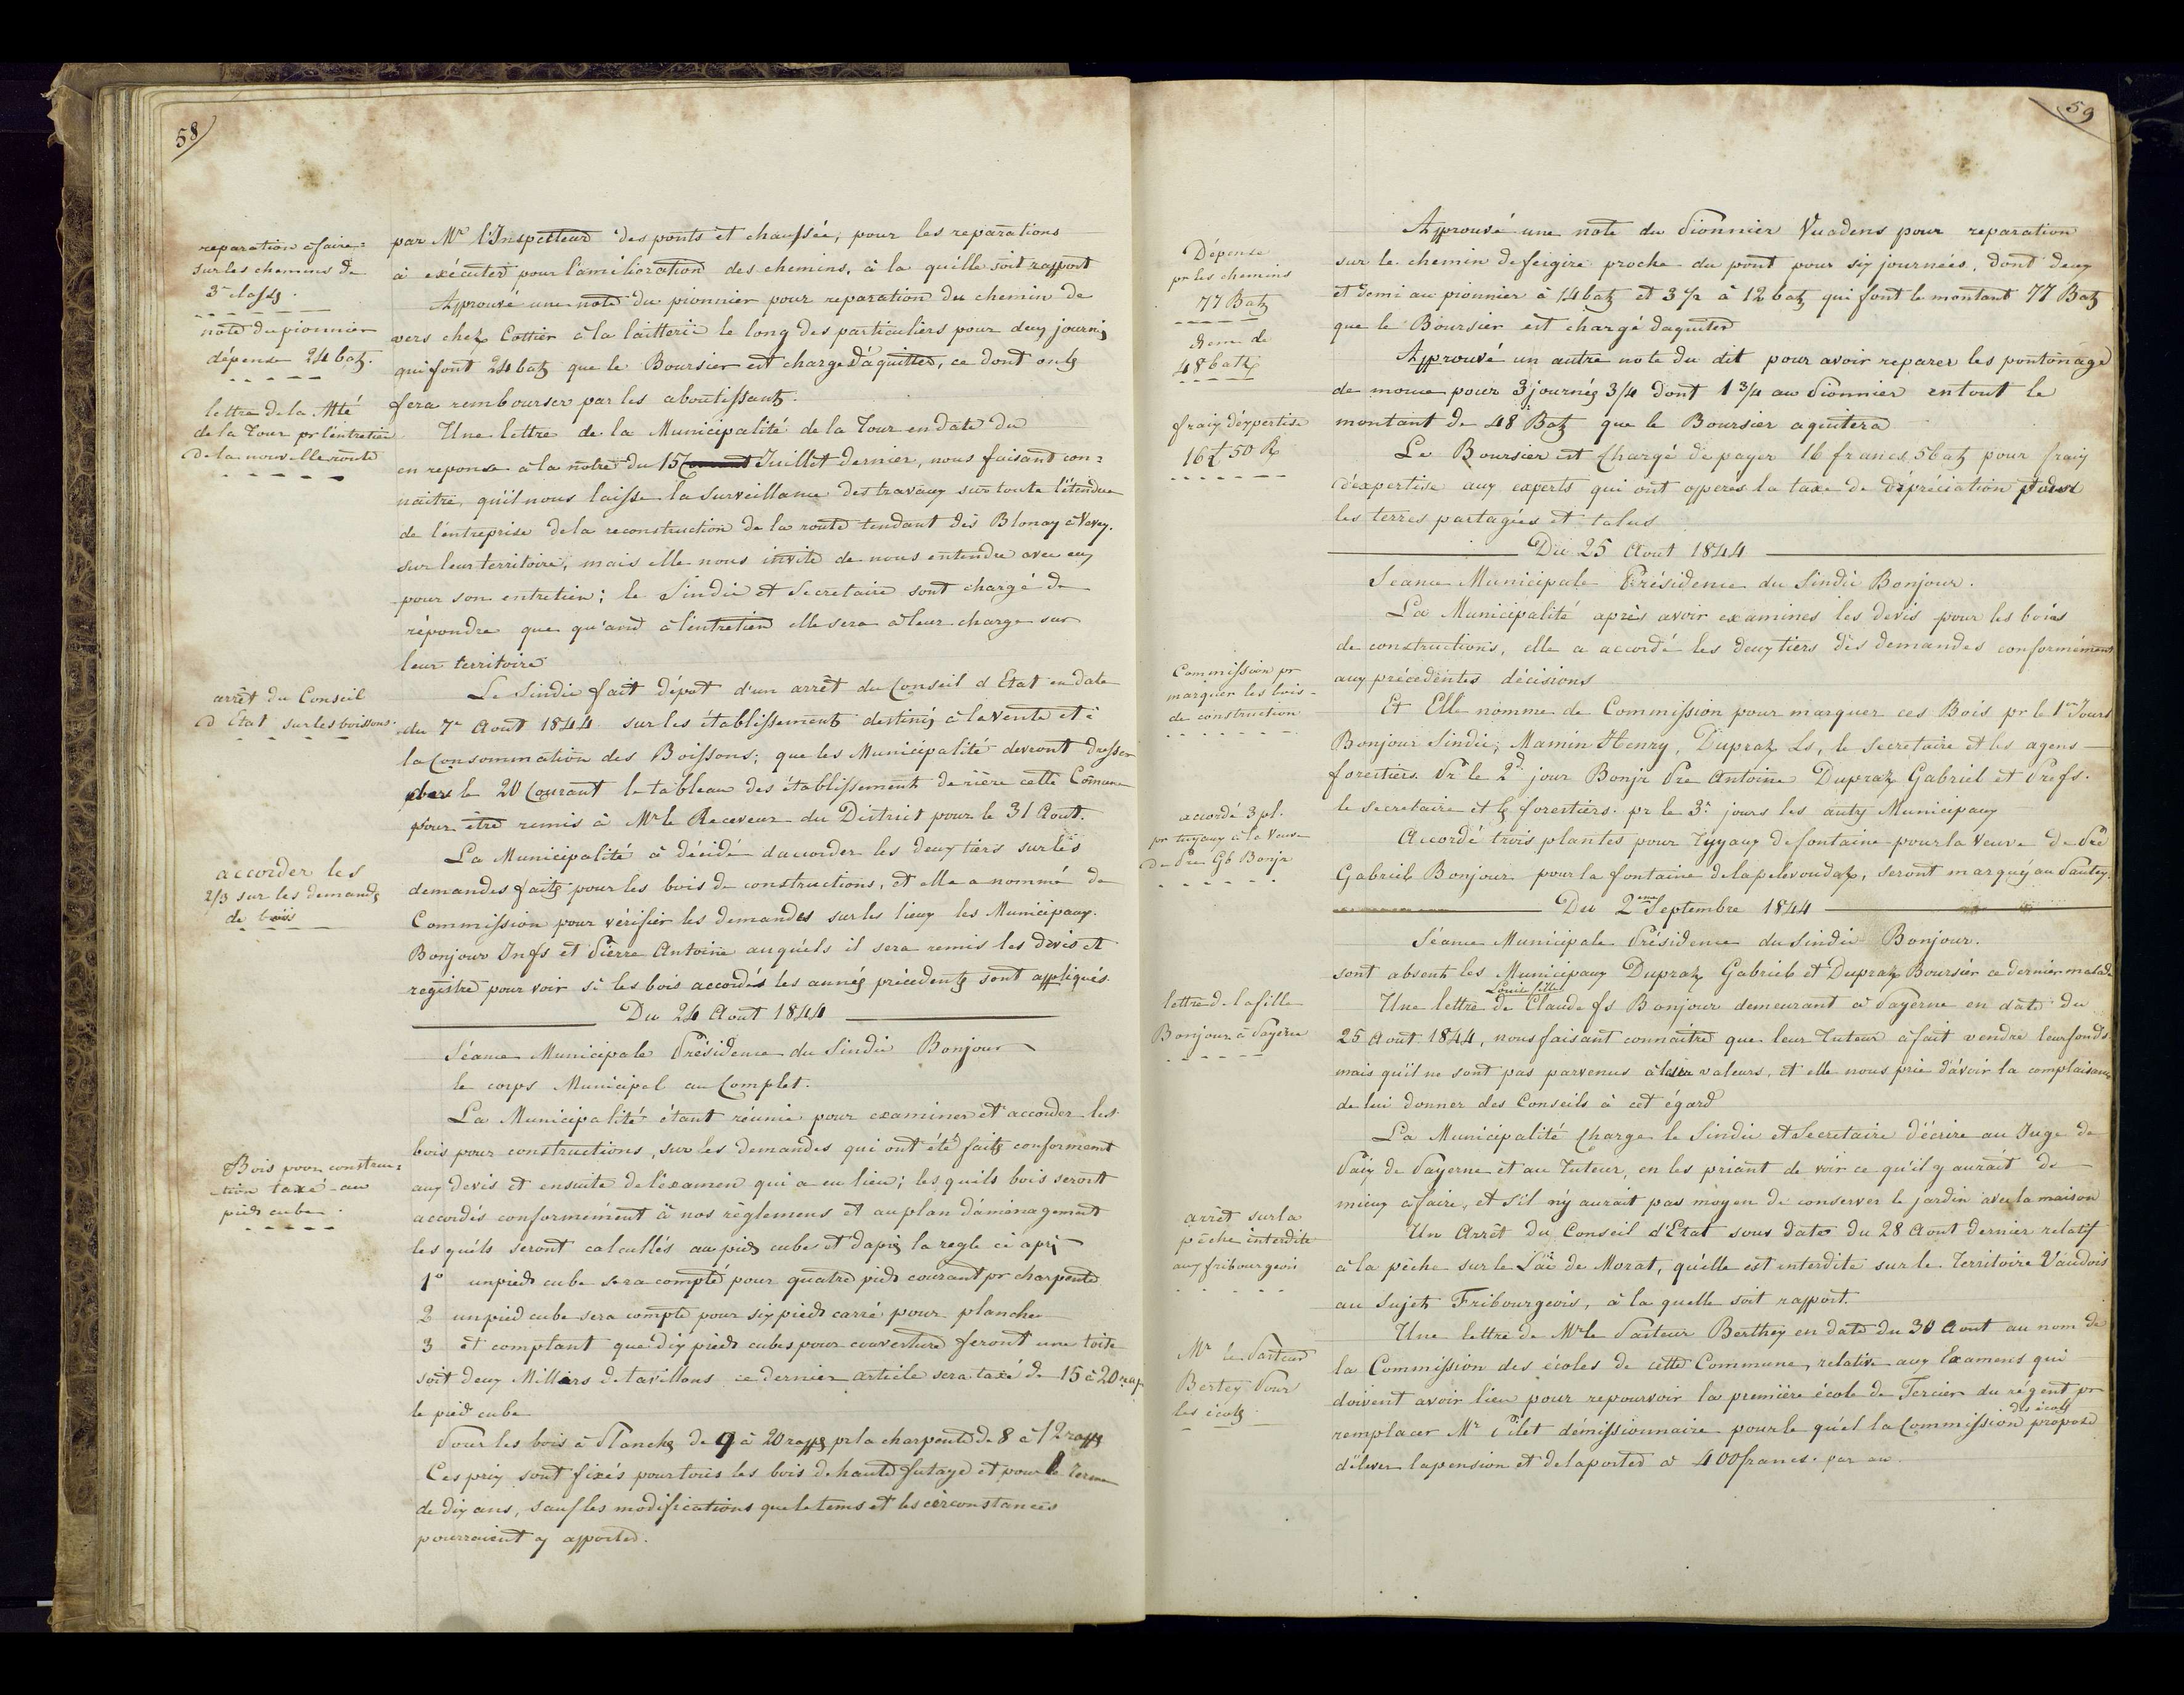 58
reparation à faire
sur les chemins de
3e classe.
note du pionnier
dépense 24 batz.
lettre de la Mté
de la Tour pr l'entretien
de la nouvelle route
arrêt du Conseil
d'Etat sur les boissons.
accorder les
2/3 sur les demandes
de bois
Bois pour construc=
tion taxé au
pied cube.
par Mr l'Inspecteur des ponts et chaussée, pour les reparations
à exécuter pour l'amilioration des chemins, à la quelle soit rapport
Approuvé une note du pionnier pour reparation du chemin de
vers chez Cottier à la laitterie le long des particuliers pour deux journés
qui font 24 batz que le Boursier est charge d'aquitter, ce dont on se
fera rembourser par les aboutissants.
Une lettre de la Municipalité de la Tour en date du
en reponse à la notre du 15 Courant Juillet dernier, nous faisant con=
naitre, qu'il nous laisse la surveillance des travaux sur toute l'étendue
de l'entreprise de la reconstruction de la route tendant dès Blonay à Vevey.
sur leur territoire, mais elle nous invite de nous entendre avec eux
pour son entretien; le Sindic et Secretaire sont chargé de
répondre que qu'and à l'entretien elle sera à leur charge sur
leur territoire
Le Sindic fait dépot d'un arrêt du Conseil d'Etat en date
du 7e Aout 1844 sur les établissements destinés à la vente et à
la Consommation des Boissons; que les Municipalité devront dresser
dans le 20 Courant le tableau des établissements derière cette Comune
pour etre remis à Mr le Receveur du District pour le 31 Aout.
La Municipalité à décidé d'accorder les deux tiers sur les
demandes faites pour les bois de constructions, et elle a nommé de
Commission pour vérifier les demandes sur les lieux les Municipaux.
Bonjour Jn fs et Pierre Antoine auquels il sera remis les devis et
registre pour voir si les bois accordés les annés précedents sont appliqués.
Du 24 Aout 1844
Séance Municipale Présidence du Sindic Bonjour
le corps Municipal au Complet.
La Municipalité étant réunie pour examiner et accorder les
bois pour constructions, sur les demandes qui ont été faits conforment
aux devis et ensuite de l'examen qui a eu lieu; les quils bois seront
accordés conformément à nos règlemens et au plan d'aménagement
les quels seront calcullés au pied cube et d'aprés la regle ci aprés
1o un pied cube sera compté pour quatre pieds courant pr charpente
2 un pied cube sera compté pour six pieds carré pour planche
3 et comptant que dix pieds cubes pour couverture feront une toite
soit deux Milliers de tavillons ce dernier article sera taxé de 15 à 20 rap
le pied cube
Pour les bois à Planches de 9 à 20 rapps pr la charpente de 8 à 12 rapps
Ces prix sont fixés pour touts les bois de haute futaye et pour le terme
de dix ans, sauf les modifications que le tems et les circonstances
pourraient y apporter.
59
Dépense
pr les chemins
77 Batz
idem de
48 batz
fraix d'expertise
16 f 50 R
Commission pr
marquer les bois
de construction
accordé 3 pl.
pr tuyaux à la Veuve
de Pre Gb Bonjr
lettre de la fille
Bonjour à Payerne
arrêt sur la
pêche interdite
aux fribourgeois
Mr le Pasteur
Bertey Pour
les écoles
Approuvé une note du Pionnier Vuadens pour reparation
sur le chemin de feigire proche du pont pour six journées, dont deux
et demi au pionnier à 14 batz et 3 1/2 à 12 batz qui font le montant 77 Batz
que le Boursier est chargé daquiter
Approuvé un autre note du dit pour avoir reparer les pontonage
de moue pour 3 journés 3/4 dont 1 3/4 au Pionnier en tout le
montant de 48 Batz que le Boursier aquitera
Le Boursier est Chargé de payer 16 francs, 5 batz pour fraix
d'expertise aux experts qui ont opperes la taxe de dépréciation pour
les terres partagées et talus
Du 25 Aout 1844
Seance Municipale Présidence du Sindic Bonjour.
La Municipalité après avoir examines les devis pour les boies
de constructions, elle a accordé les deux tiers des demandes conformément
aux précédentes décisions
Et Elle nomme de Commission pour marquer ces Bois pr le 1er Jours
Bonjour Sindic, Mamin Henry, Dupraz Ls, le Secretaire et les agens
forestiers. Pr le 2d jour Bonjr Pre Antoine Dupraz Gabriel et Pre fs.
le secretaire et les forestiers. pr le 3e jours les autres Municipaux
Accordé trois plantes pour Tuyaux de fontaine pour la Veuve de Pre
Gabriel Bonjour pour la fontaine de , seront marqué au Pautex.
Du 2eme Septembre 1844
Séance Municipale Présidence du Sindic Bonjour.
sont absent les Municipaux Dupraz Gabriel et Dupraz Boursier ce dernier malade
Louise fille
Une lettre de Claude fs Bonjour demeurant à Payerne en date du
25 Aout 1844, nous faisant connaitre que leur Tuteur à fait vendre leur fonds
mais qu'il ne sont pas parvenus à valeurs, et elle nous prie d'avoir la complaisance
de lui donner des Conseils à cet égard
La Municipalité Charge le Sindic et Secretaire d'écrire au Juge de
Paix de Payerne et au Tuteur, en les priant de voir ce qu'il y aurait de
mieux à faire, et s'il n'y aurait pas moyen de conserver le jardin avec la maison
Un Arrêt du Conseil d'Etat sous date du 28 Aout dernier relatif
à la pêche sur le Lac de Morat, qu'elle est interdite sur le Territoire Vaudois
au Sujets Fribourgeois, à la quelle soit rapport.
Une lettre de Mr le Pasteur Berthey en date du 30 Aout au nom de
la Commission des écoles de cette Commune, relative aux Examens qui
doivent avoir lieu pour repourvoir la première école de Tercier du régent pr
des écoles
remplacer Mr Pilet démissionnaire pour le qu'el la Commission propose
d'élever la pension et de la porter à 400 francs. par an.